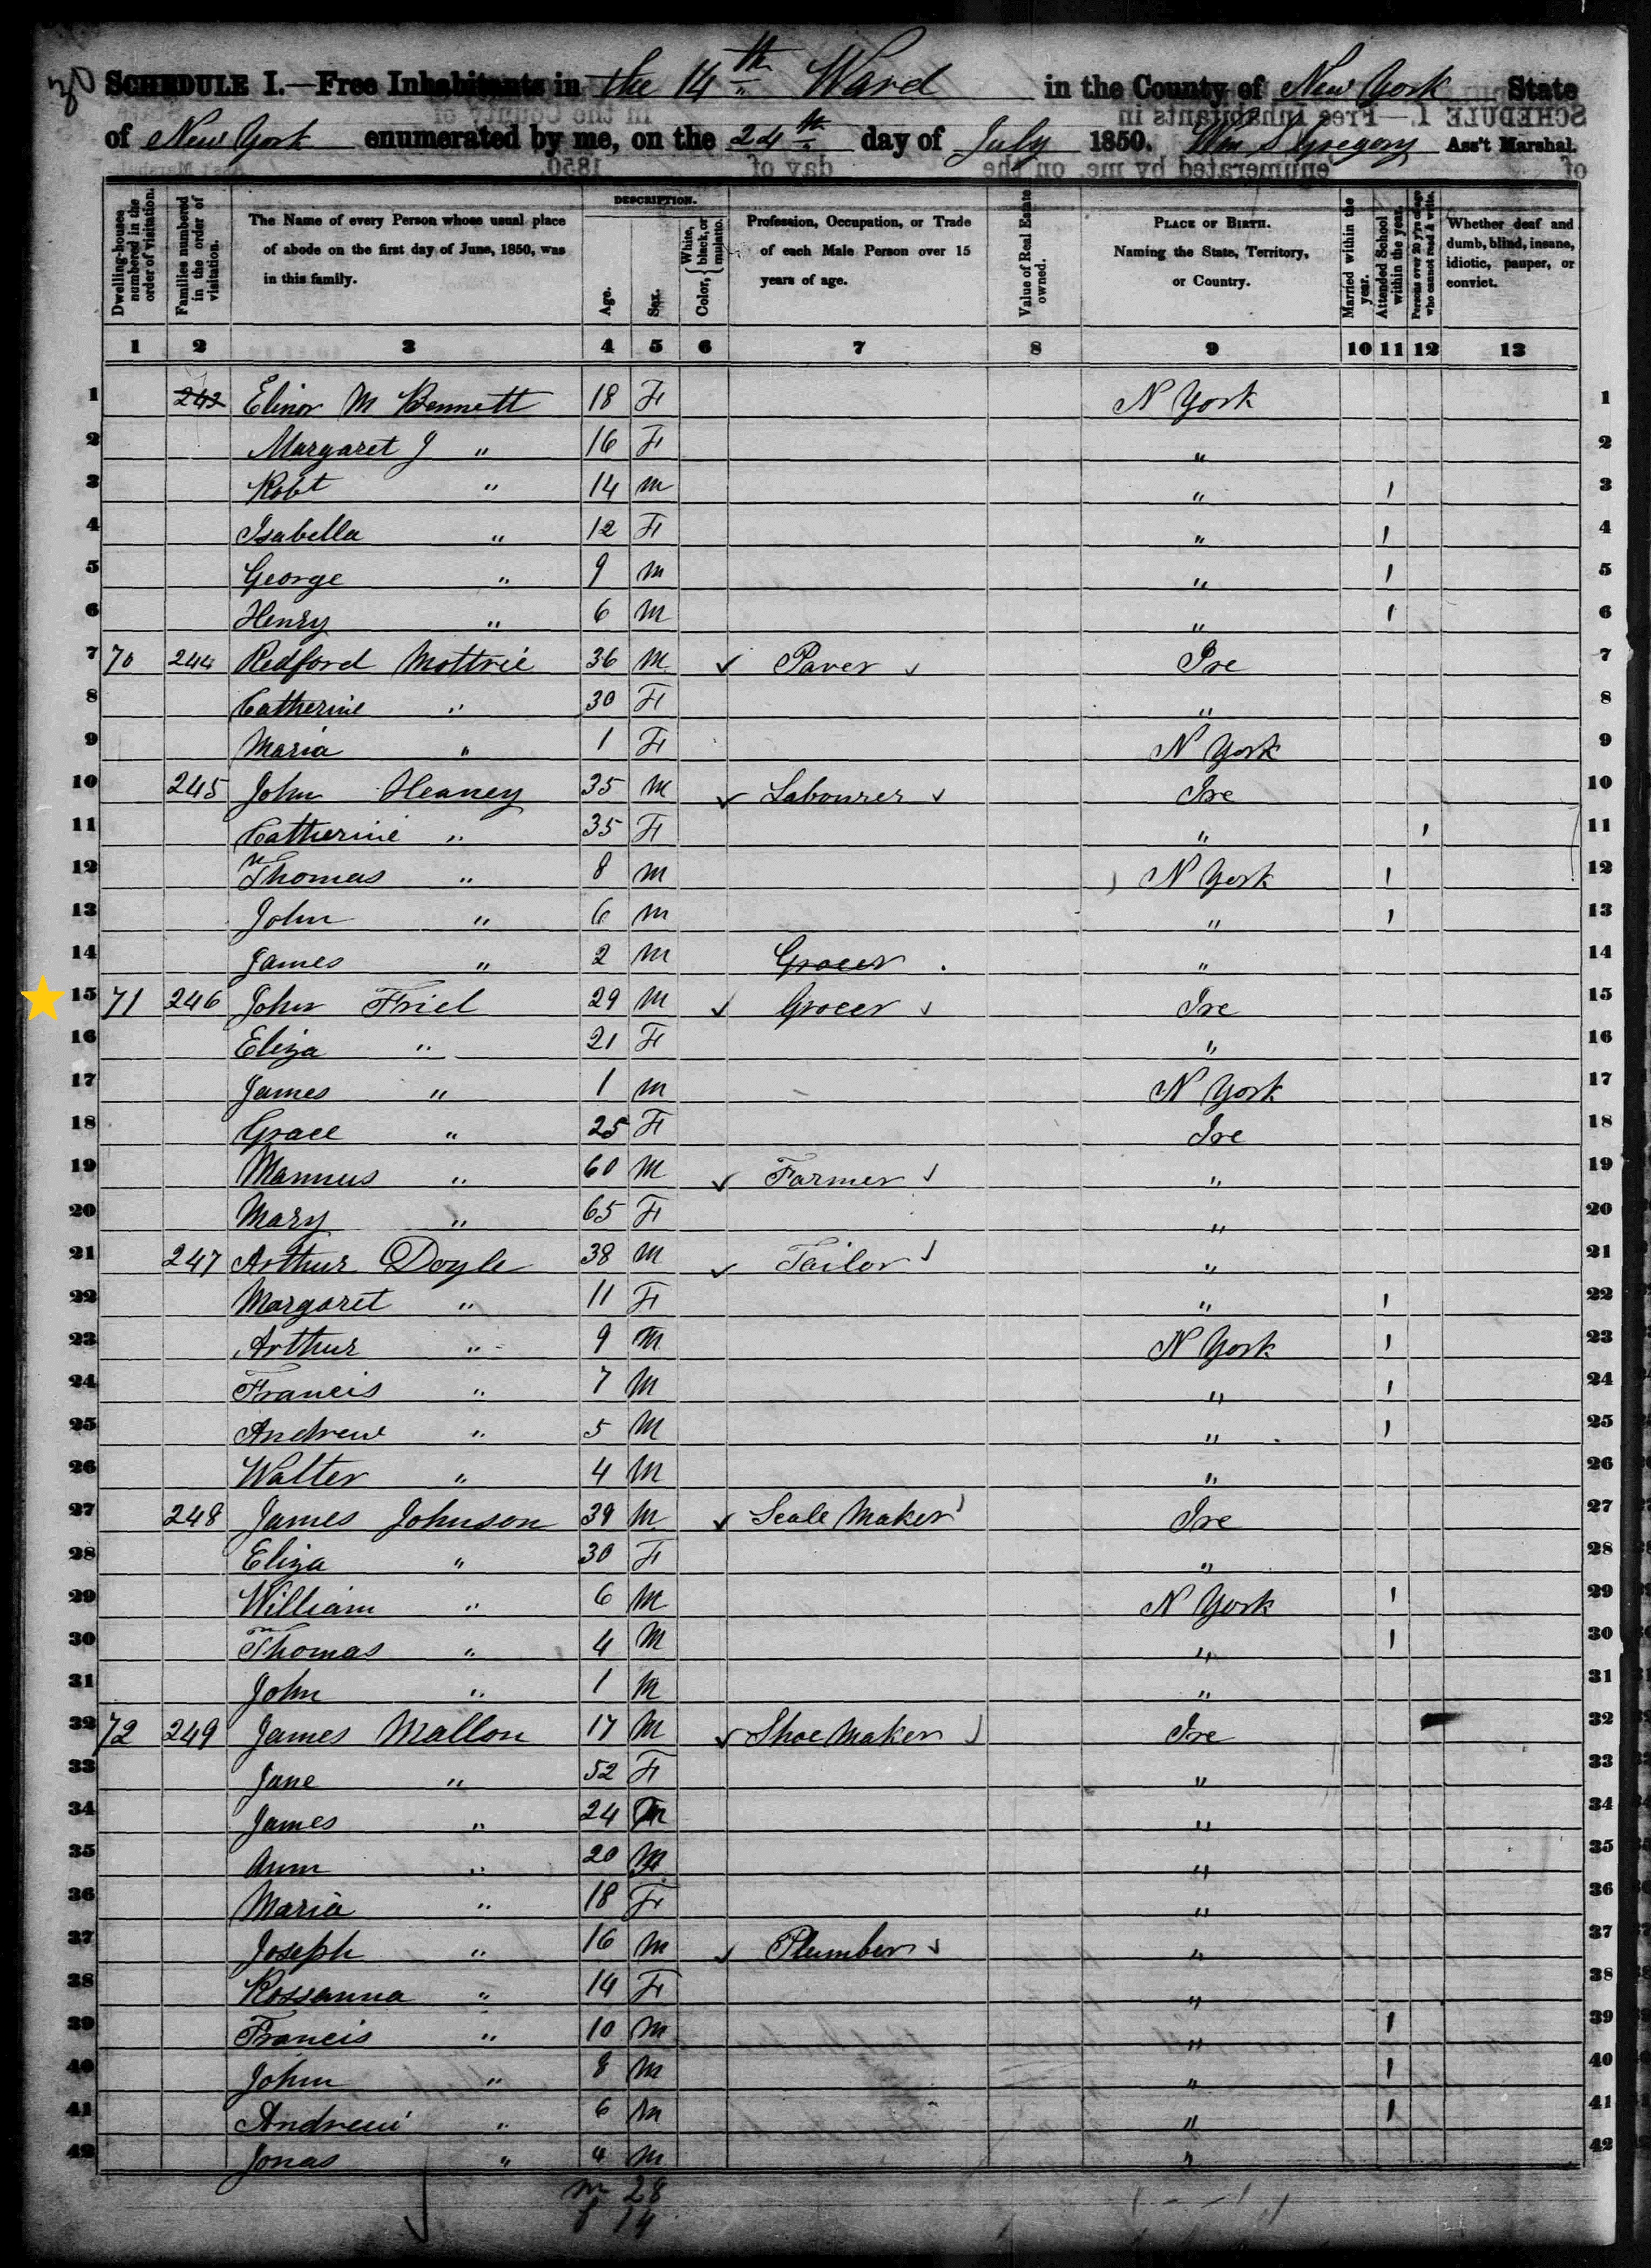 30 SCHEDULE I.—Free Inhabitants in the 14th Ward in the County of New York State
of New York enumerated by me, on the 24th day of July 1850. Wm S Gregory Ass't Marshal.
Dwelling-houses numbered in the order of visitation.
Families numbered in the order of visitation.
The Name of every Person whose usual place of abode on the first day of June, 1850, was in this family.
DESCRIPTION.
Age.
Sex.
Color, { White, black, or mulatto.
Profession, Occupation, or Trade of each Male Person over 15 years of age.
Value of Real Estate owned.
PLACE OF BIRTH. Naming the State, Territory, or Country.
Married within the year.
Attended School within the year.
Persons over 20 y'rs of age who cannot read & write.
Whether deaf and dumb, blind, insane, idiotic, pauper, or convict.
1 2 3 4 5 6 7 8 9 10 11 12 13
1 242 Elinor M Bennett 18 F N York 1
2 Margaret J " 16 F " 2
3 Robt " 14 M " 1 3
4 Isabella " 12 F " 1 4
5 George " 9 M " 1 5
6 Henry " 6 M " 1 6
7 70 244 Redford Mottrie 36 M ✓ Paver ✓ Ire 7
8 Catherine " 30 F " 8
9 Maria " 1 F N York 9
10 245 John Heaney 35 M ✓ Labourer ✓ Ire 10
11 Catherine " 35 F " 1 11
12 Thomas " 8 M N York 1 12
13 John " 6 M " 1 13
14 James " 2 M Grocer " 14
15 71 246 John Friel 29 M ✓ Grocer ✓ Ire 15
16 Eliza " 21 F " 16
17 James " 1 M N York 17
18 Grace " 25 F Ire 18
19 Mannus " 60 M ✓ Farmer ✓ " 19
20 Mary " 65 F " 20
21 247 Arthur Doyle 38 M ✓ Tailor ✓ " 21
22 Margaret " 11 F " 1 22
23 Arthur " 9 M N York 1 23
24 Francis " 7 M " 1 24
25 Andrew " 5 M " 1 25
26 Walter " 4 M " 26
27 248 James Johnson 39 M ✓ Scale Maker ✓ Ire 27
28 Eliza " 30 F " 28
29 William " 6 M N York 1 29
30 Thomas " 4 M " 1 30
31 John " 1 M " 31
32 72 249 James Mallon 17 M ✓ Shoe Maker ✓ Ire 32
33 Jane " 52 F " 33
34 James " 24 M " 34
35 Ann " 20 F " 35
36 Maria " 18 F " 36
37 Joseph " 16 M ✓ Plumber ✓ " 37
38 Rossanna " 14 F " 38
39 Francis " 10 M " 1 39
40 John " 8 M " 1 40
41 Andrew " 6 M " 1 41
42 Jonas " 4 M " 42
m 28
f 14